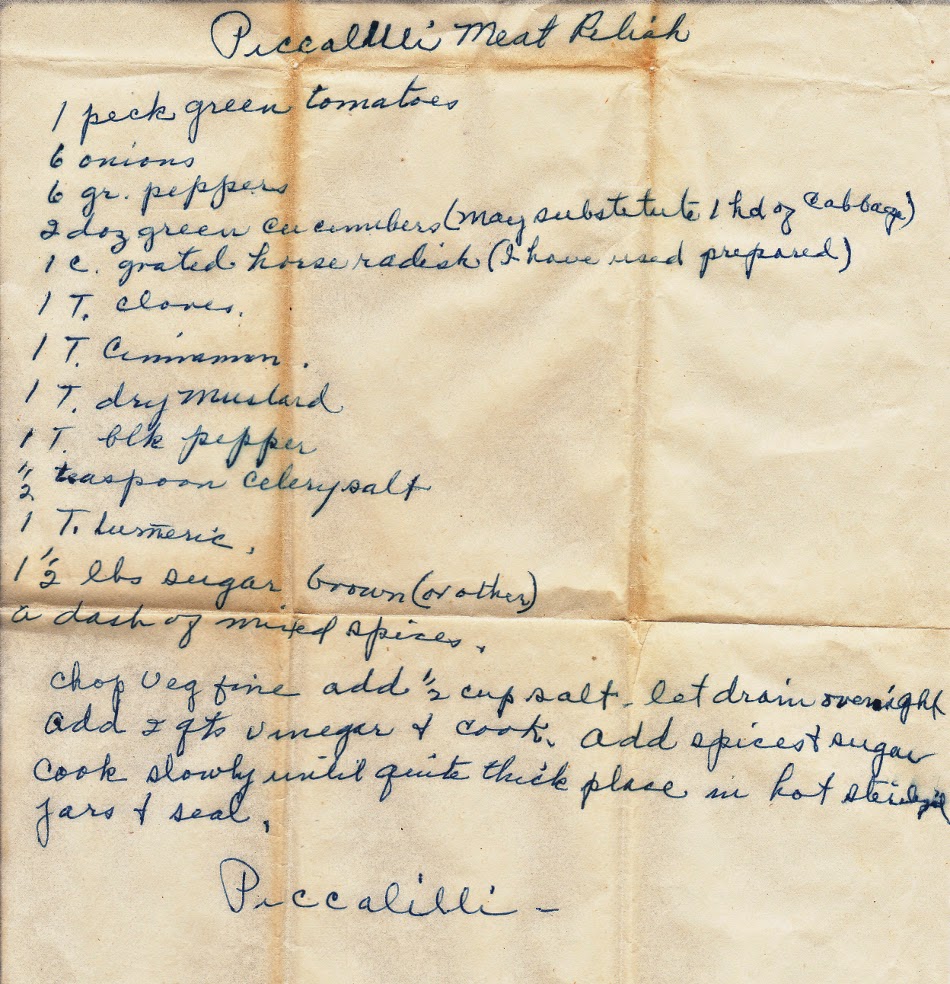 Piccalilli Meat Relish
1 peck green tomatoes
6 onions
6 gr. peppers
2 doz green cucumbers (may substitute 1 hd of cabbage)
1 c. grated horse radish (I have used prepared)
1 T. cloves.
1 T. Cinnamon.
1 T. dry mustard
1 T. blk pepper
1/2 teaspoon celery salt
1 T. turmeric.
1 1/2 lbs sugar brown (or other)
a dash of mixed spices.
chop veg fine add 1/2 cup salt. let drain overnight
add 2 qts vinegar & cook. add spices & sugar
cook slowly until quite thick place in hot
jars & seal.
Piccalilli -